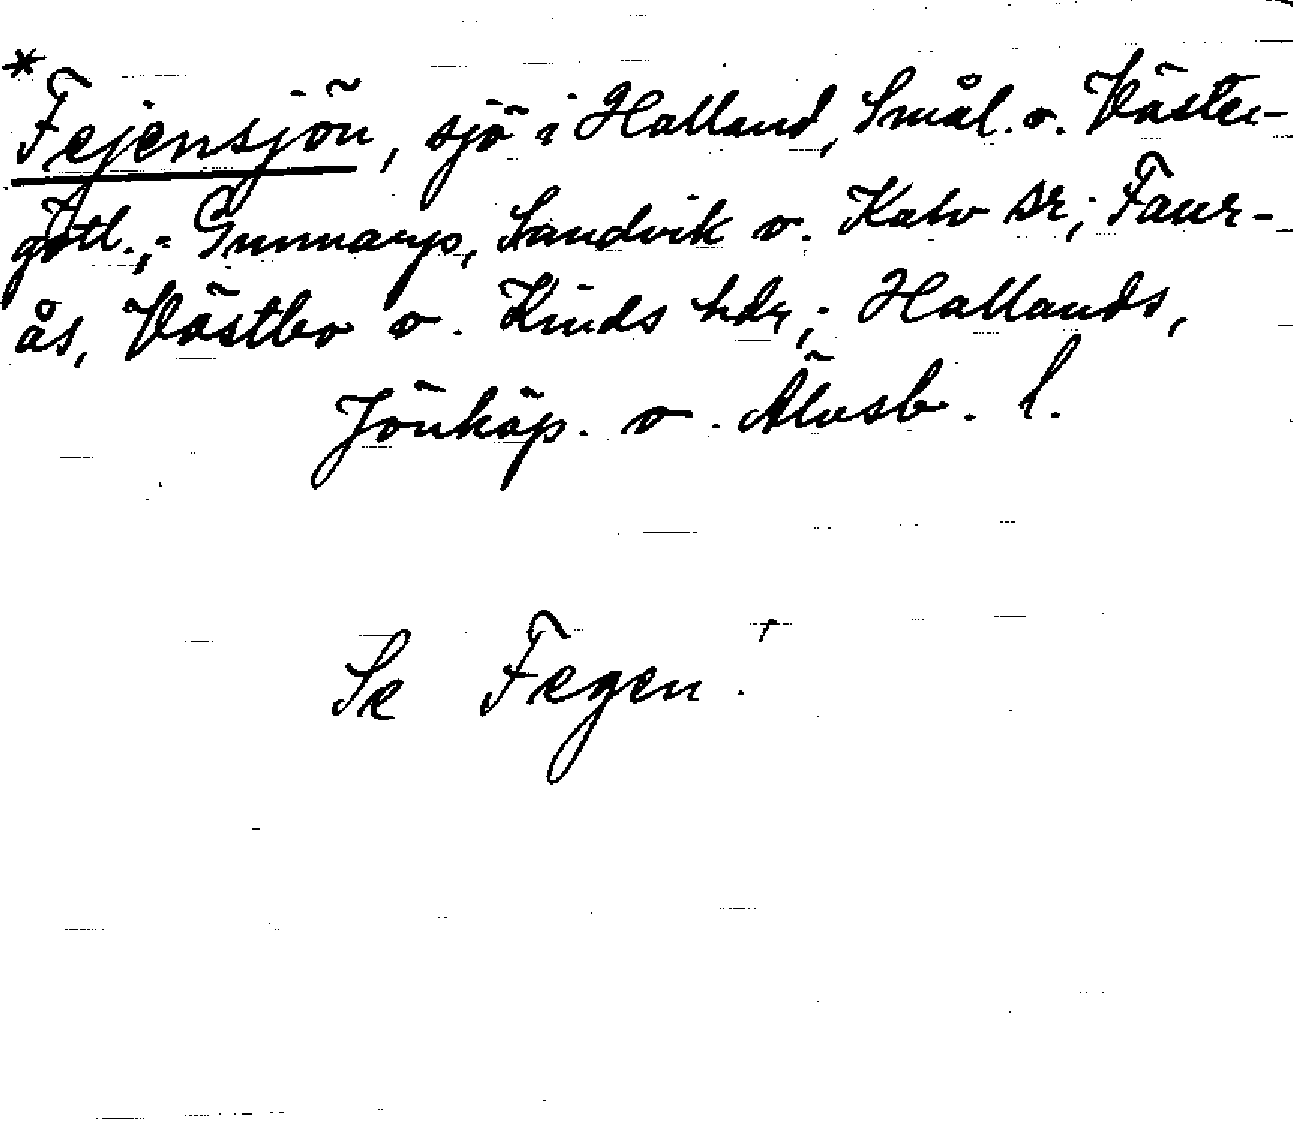 * Fejensjön, sjö i Halland, Smål. o. Väster-
götl.; i Gunnarps, Sandvik o. Kalv sr; Faur-
ås, Västbo o. Kinds hdr; Hallands,
Jönköp. o. Älvsb. l.
Se Fegen.